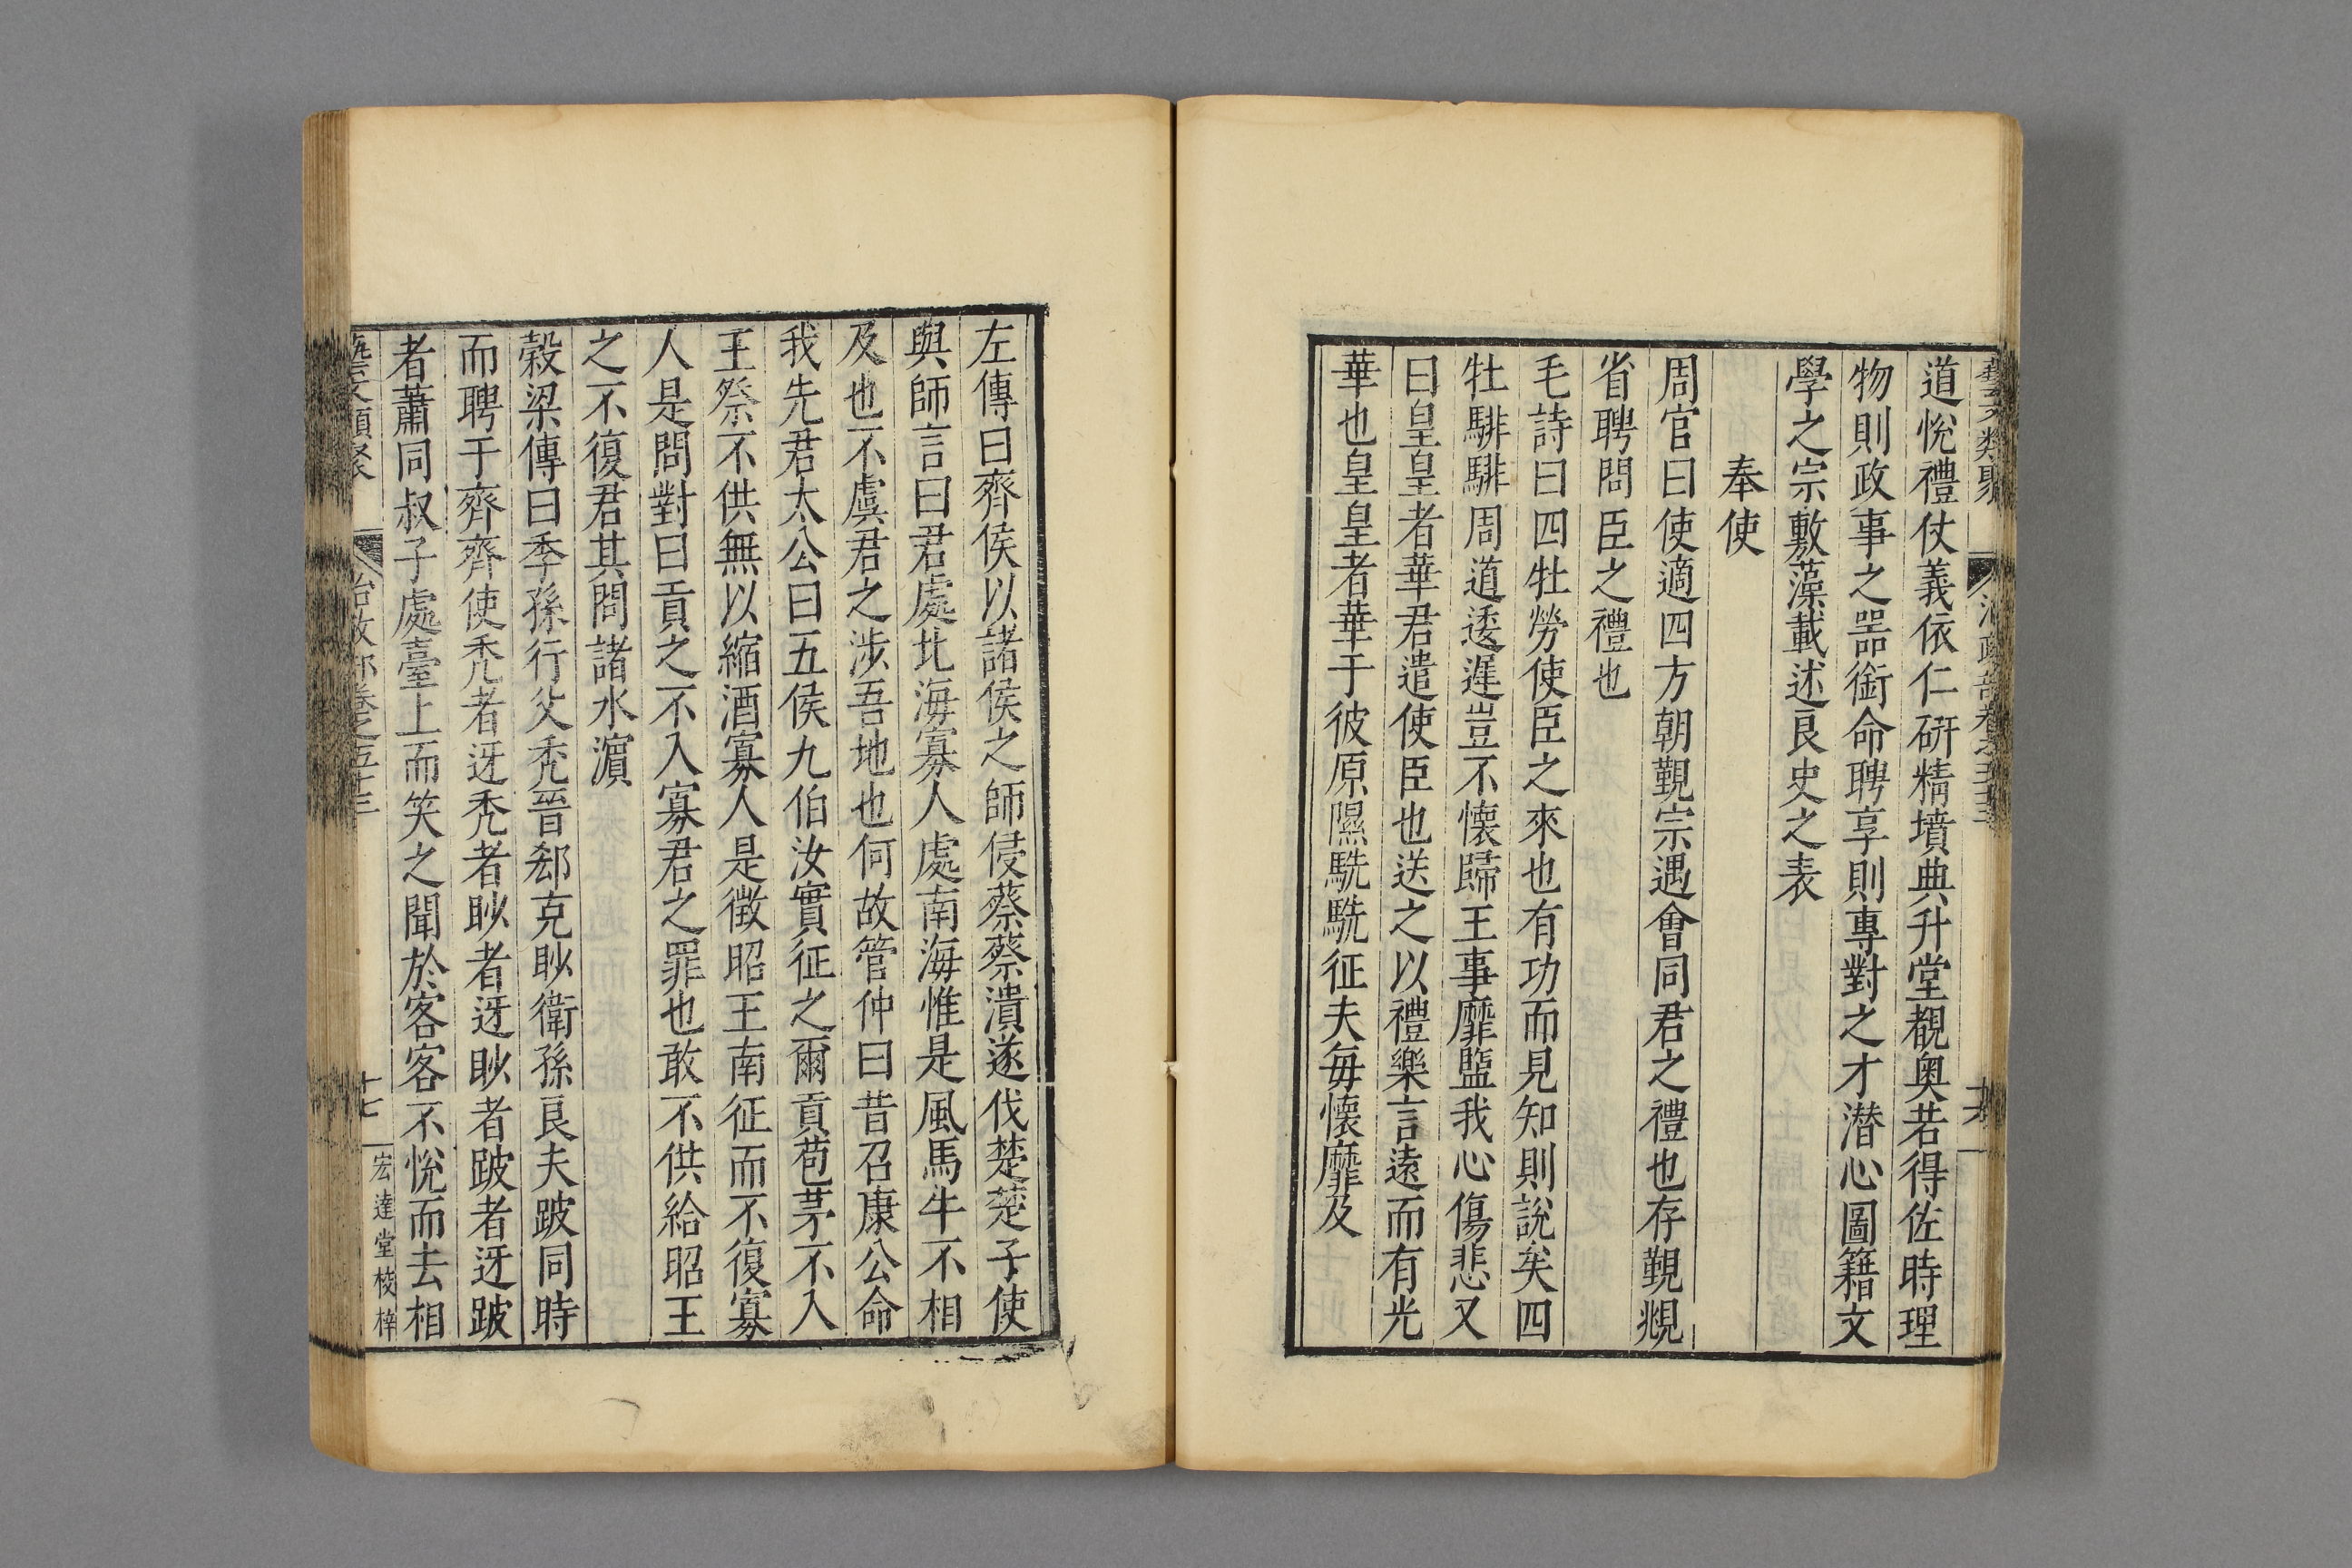 藝文類聚 治政部卷之五十三
道悅禮仗義依仁研精墳典升堂覩奧若得佐時理
物則政事之噐銜命聘享則專對之才潛心圖籍文
學之宗敷藻載述良史之表
奉使
周官曰使適四方朝覲宗遇會同君之禮也存覲覜
省聘問臣之禮也
毛詩曰四牡勞使臣之來也有功而見知則說矣四
牡騑騑周道逶遲豈不懷歸王事靡盬我心傷悲又
曰皇皇者華君遣使臣也送之以禮樂言遠而有光
華也皇皇者華于彼原隰駪駪征夫每懷靡及
左傳曰齊侯以諸侯之師侵蔡蔡潰遂伐楚楚子使
與師言曰君處北海寡人處南海惟是風馬牛不相
及也不虞君之涉吾地也何故管仲曰昔召康公命
我先君太公曰五侯九伯汝實征之爾貢苞茅不入
王祭不供無以縮酒寡人是徵昭王南征而不復寡
人是問對曰貢之不入寡君之罪也敢不供給昭王
之不復君其問諸水濵
榖梁傳曰季孫行父秃晉郄克眇衛孫良夫跛同時
而聘于齊齊使秃者迓秃者眇者迓眇者跛者迓跛
者蕭同叔子處臺上而笑之聞於客客不悅而去相
藝文類聚 治政部卷之五十三 十七 宏達堂校梓